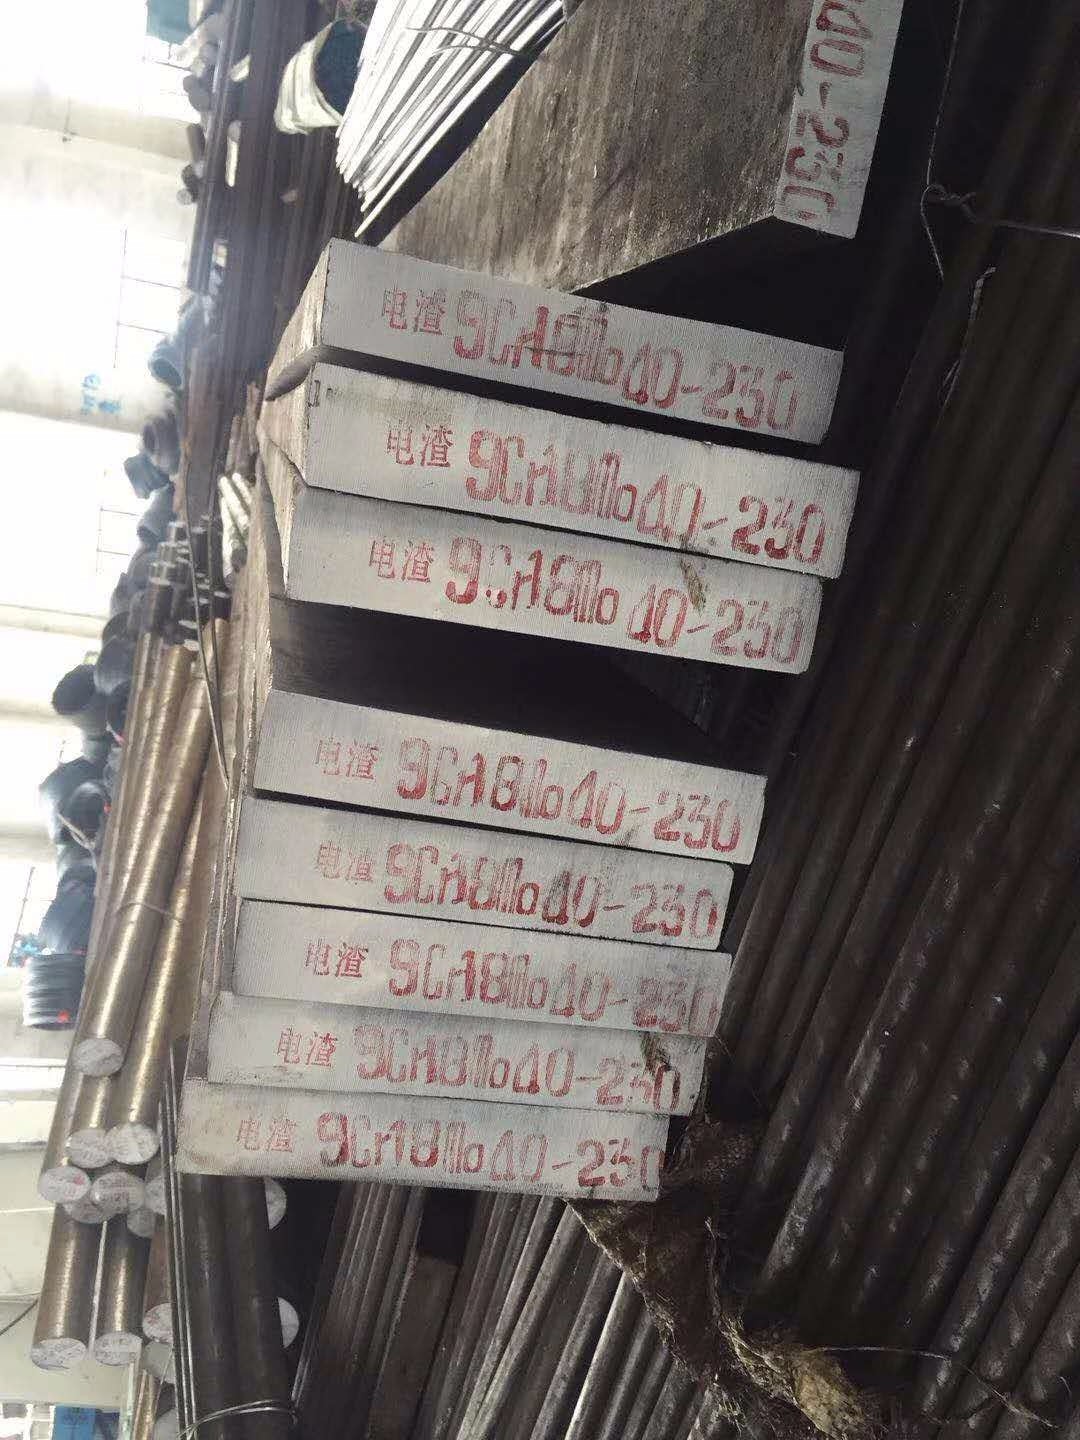 40-230
电渣 9Cr18Mo 40-230
电渣 9Cr18Mo 40-230
电渣 9Cr18Mo 40-230
电渣 9Cr18Mo 40-230
电渣 9Cr18Mo 40-230
电渣 9Cr18Mo 40-230
电渣 9Cr18Mo 40-230
电渣 9Cr18Mo 40-230